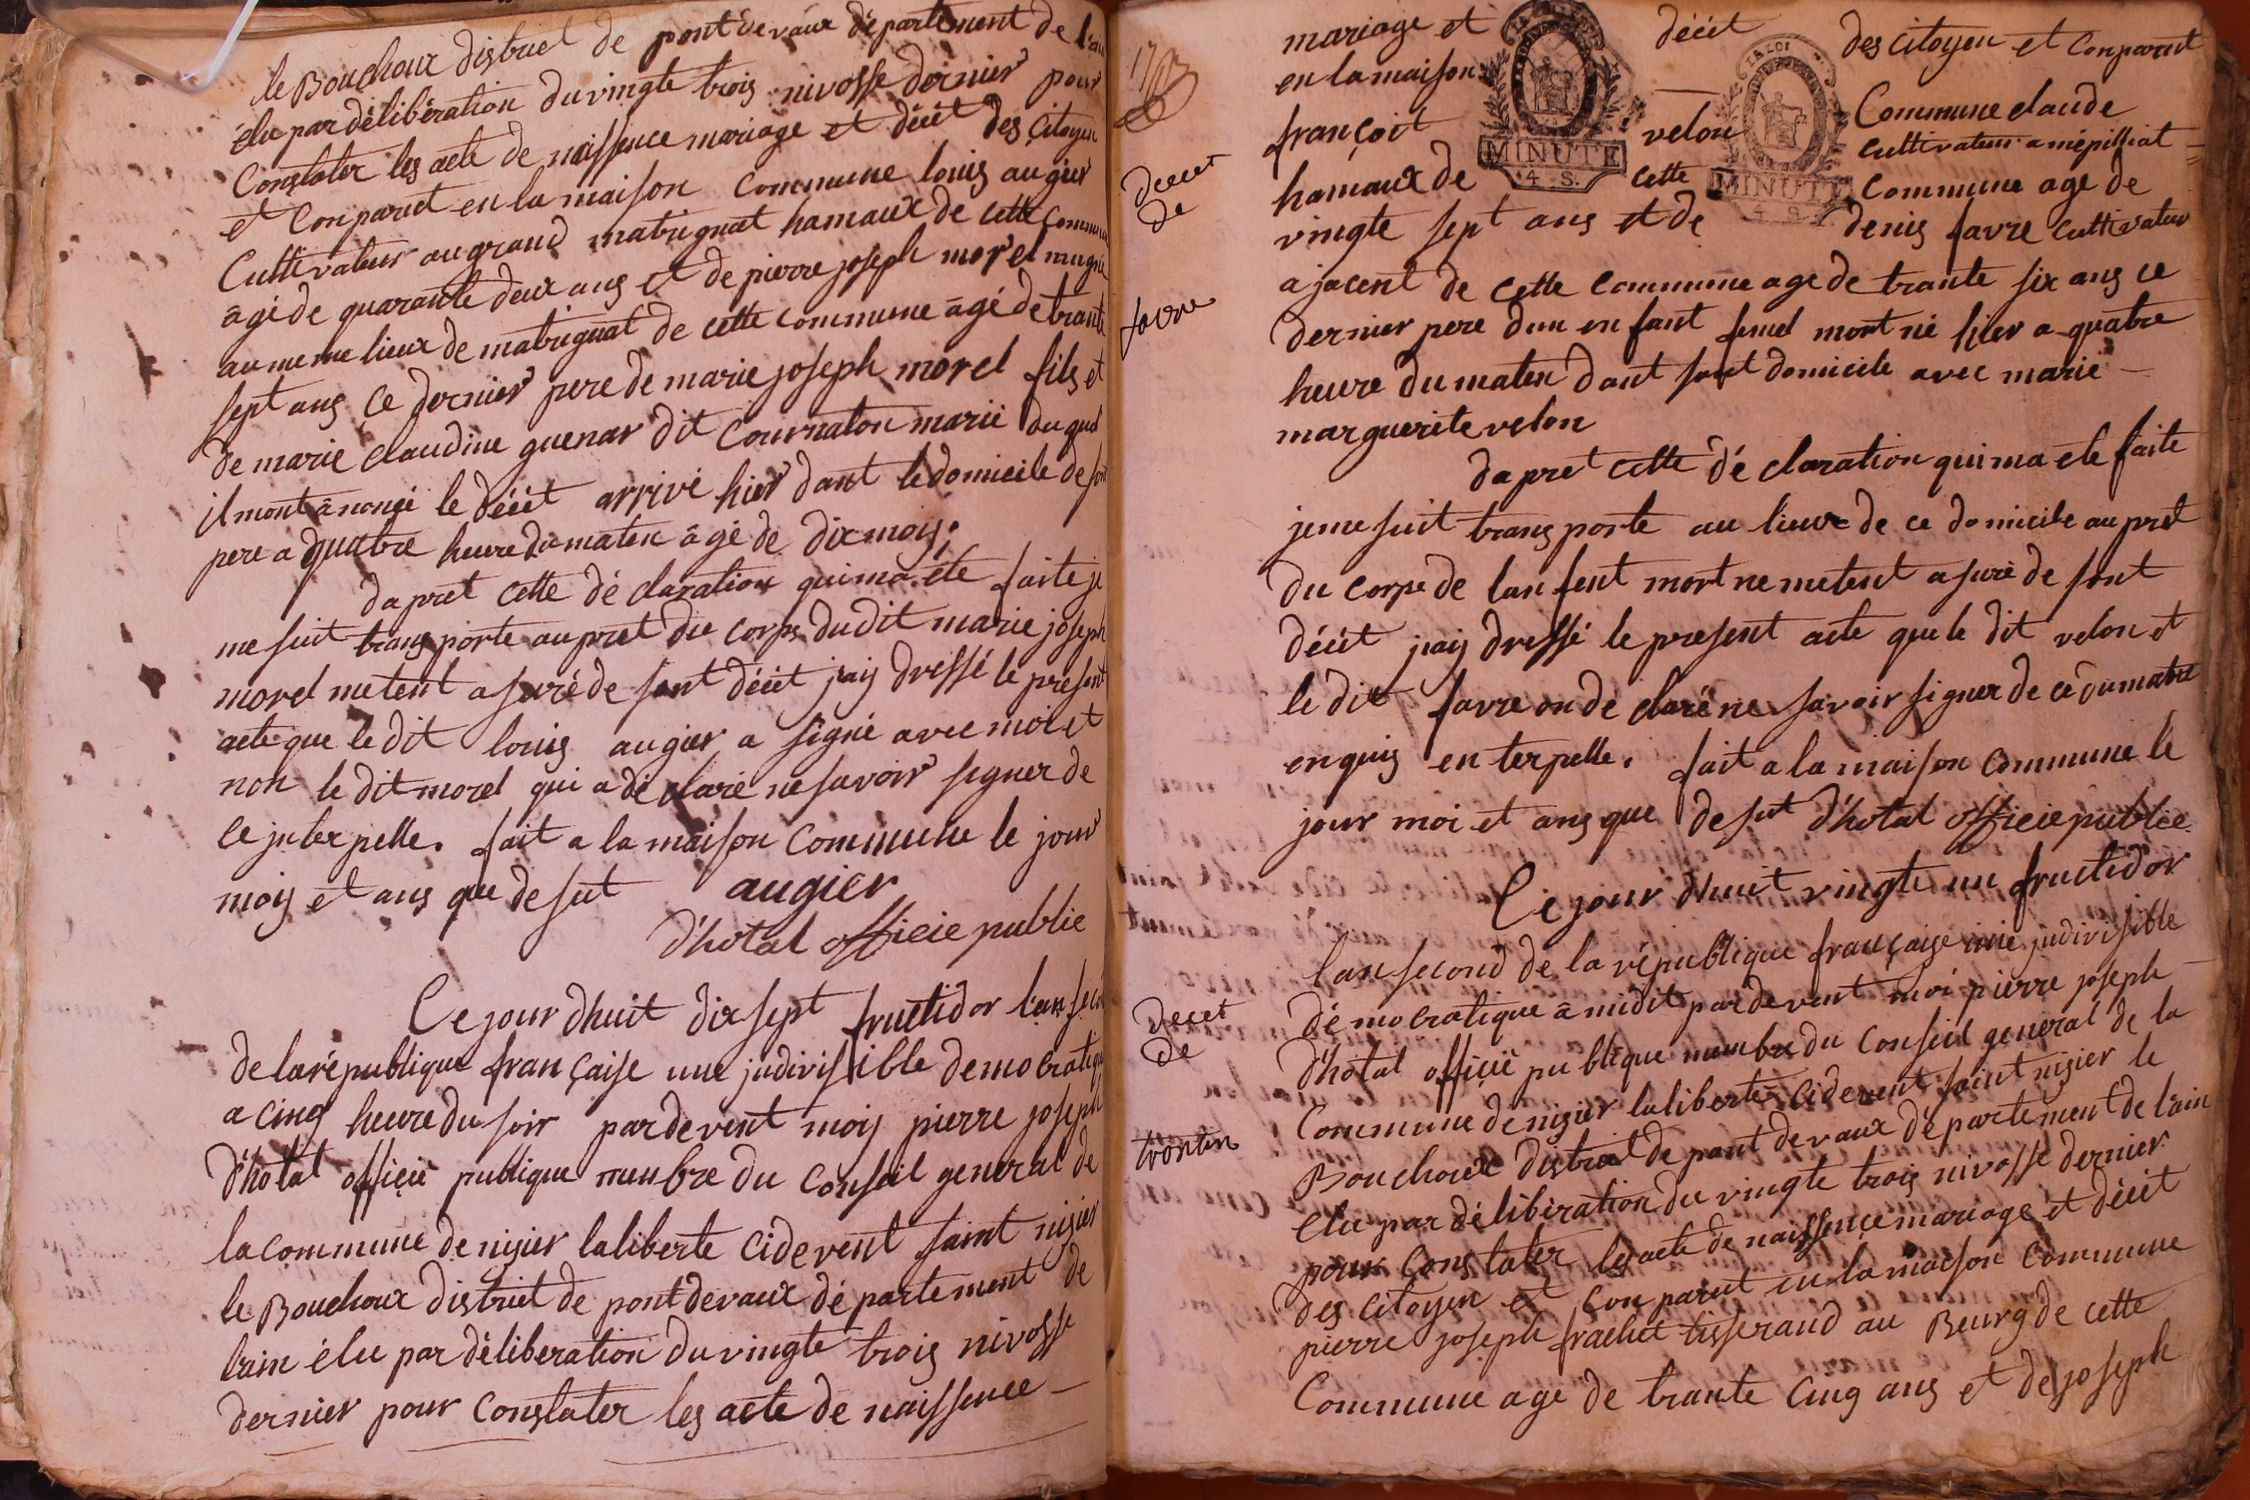 le Bouchoux district de pont de vaux département de l'ain
élu par délibération du vingte trois nivosse dernier pour
Constater les acte de naissence mariage et décèt des Citoyen
et Conparut en la maison Commune louis augier
Cultivateur au grand matrignat hamaux de cette Commune
âgé de quarante deux ans et de pierre joseph morel
au meme lieux de matrignat de cette commune âgé de trante
sept ans ce dernier pere de marie joseph morel fils et
de marie claudine guenar dit Cournaton marié duquel
il mont ânoncé le décèt arrivé hier dant le domicile de son
pere a quatre heure du maten âgé de dix mois.
dapret cette déclaration qui ma eté faite je
me suit transporte au pret du corps du dit marie joseph
morel metent asuré de sont décèt j'aij dressé le present
acte que le dit louis augier a signé avec moi et
non le dit morel qui a déclaré ne savoir signer de
ce juterpelle. fait a la maison Commune le jour
moij et ans que desut augier
D'hotal officié public
Ce jourdhuit dix sept fructidor l'an second
de la république française une judivissible democratique
a cinq heure du soir pardevent moij pierre joseph
D'hotal officié publique menbre du Conseil general de
la commune de nisier laliberte cidevent saint nisier
le Bouchoux district de pont devaux département de
lain élu par déliberation du vingte trois nivosse
dernier pour Constater les acte de naissence
mariage et décèt des citoyen et Conparut
en la maison Commune claude
françoit velon Cultivateur a mépilliat
hamaux de cette Commune age de
vingte sept ans et de denis favre Cultivateur
ajacent de cette Commune age de trante six ans ce
dernier pere dun enfant femel mort né hier a quatre
heure du maten dant sont domicile avec marie
marguerite velon
dapret cette déclaration qui ma eté faite
je me suit transporte au lieux de ce domicile aupret
du corps de lanfent mort ne metent asuré de sont
décèt j'aij dressé le present acte que le dit velon et
le dit favre on déclaré ne savoir signer de ce dumatre
enquis enterpelle. fait a la maison Commune le
jour moi et ans que desut D'hotal officié public
Ce jour dhuit vingte un fructidor
l'an second de la république française une judivisible
démocratique â midit pardevent moi pierre joseph
D'hotal officié publique menbre du Conseil general de la
Commune de nisier laliberté cidevent saint nisier le
Bouchoux district de pont devaux département de l'ain
élu par délibération du vingte trois nivosse dernier
pour Constater les acte de naissence mariage et décèt
des Citoyen et Conparut en la maison Commune
pierre joseph frachet tisserand au Beurg de cette
Commune age de trante cinq ans et de joseph
decet
de
favre
decet
de
tronten
MINUTE
4. S.
LA LOI
MINUTE
4. S.